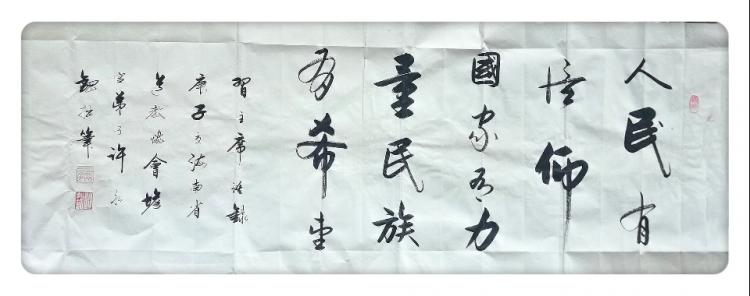 人民有
信仰
國家有力
量民族
有希望
習主席語錄
庚子夏海南省
道教協會
玄弟子許
敬書筆